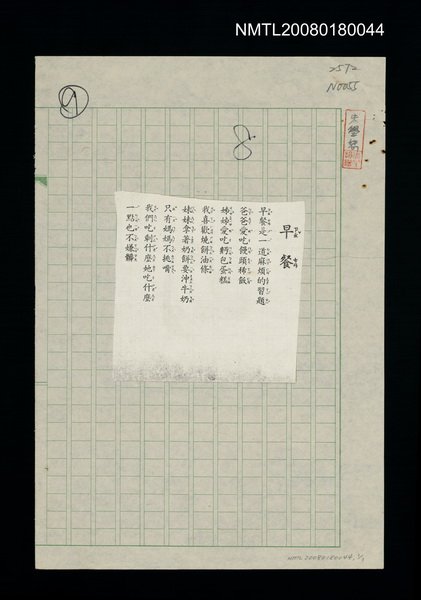 NMTL20080180044
25T2
N0055
9
8
早餐
早餐是一道麻煩的習題
爸爸愛吃饅頭稀飯
姊姊愛吃麪包蛋糕
我喜歡燒餅油條
妹妹拿著奶餅要沖牛奶
只有媽媽不挑嘴
我們吃剩什麼她吃什麼
一點也不嫌髒
NMTL20080180044, 1/1